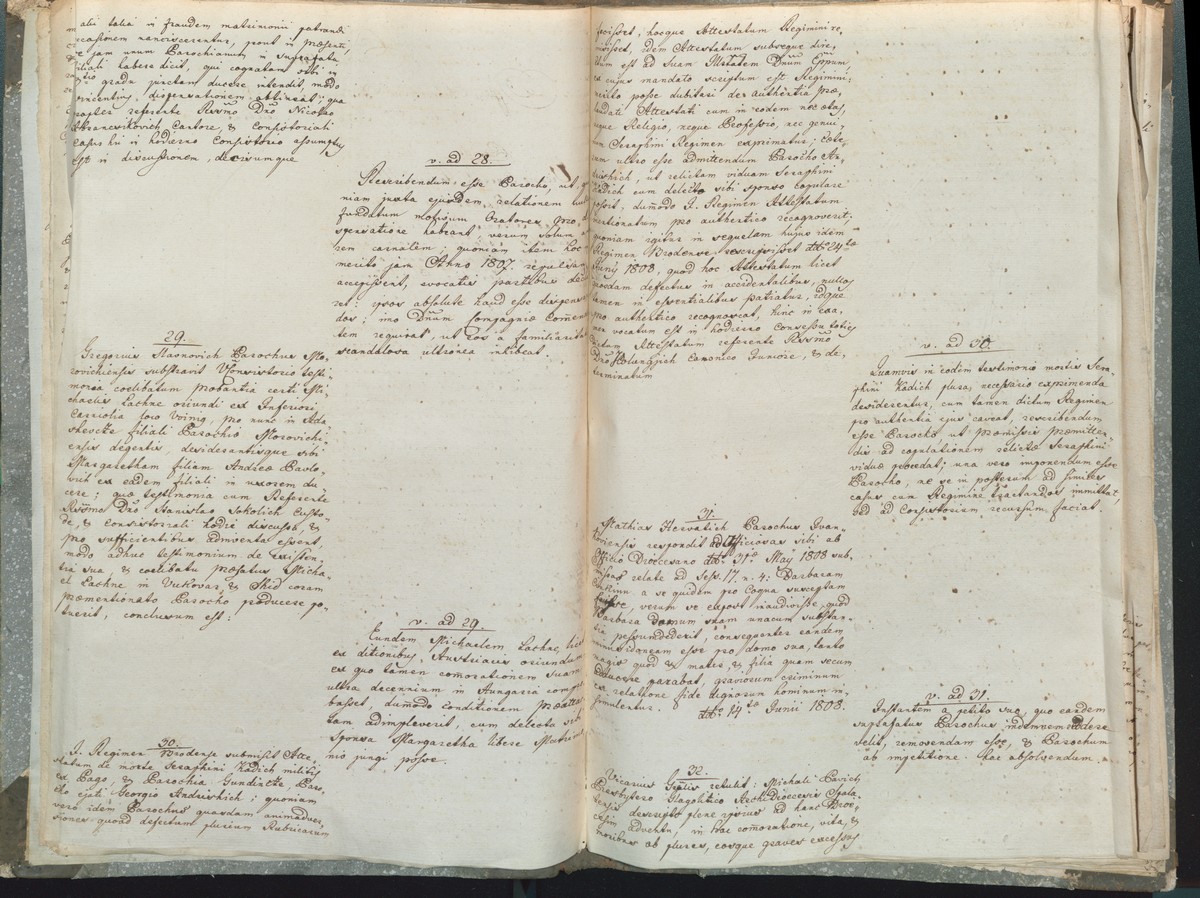 alii talia in fraudem matrimonii patrandi
occasionem nanciscerentur, prout in praesenti,
se jam unum Parochianum in suprafata
filiali habere dicit, qui cognatam sibi in
gradu junctam ducere intendit, modo
dispensationem obtineat; qua
propter referente Rssmo Dno Nicolao
Cantore, & Consistoriali
Casus hic in hodierno Consistorio assumptus
est in discussionem, decisumque
v. ad 28.
Rescribendum esse Parocho, ut
niam juxta ejusdem relationem
fundatum motivum Oratores pro
spensatione habeant, verum solum
rem carnalem; quoniam item hoc
merito jam Anno 1807 repulsam
accepissent, evocatis partibus
ret: ipsos absolute haud esse dispensan
dos; imo Dnum Compagniae Commen
tem requirat, ut eos a familiaritate
scandalosa ultronea inhibeat.
29.
Gregorius Stavnovich Parochus Mo-
rovichiensis substravit Vconsistorio testi-
monia coelibatum probantia certi Mi-
chaelis Lachne oriundi ex Inferiori
Carniolia loco Vrinig, pro nunc in Ada
shevcze filiali Parochiae Morovichi-
ensis degentis, desiderantisque sibi
Margaretham filiam Andreae Pavlo-
vich ex eadem filiali in uxorem du
cere; quae testimonia cum Referente
Rssmo Dno Stanislao Sokolich Custo
de, & Consistoriali hodie discussa, &
pro sufficientibus adinventa essent,
modo adhuc testimonium de existen,
tia sua, & coelibatu praefatus Micha-
el Lachne in Vukovar, & Illid coram
praementionato Parocho producere po-
tuerit, conclusum est:
v. ad 29
Eundem Michaelem Lachne, licet
ex ditionibus Austriacis oriundum
ex quo tamen comorationem suam
ultra decennium in Hungaria compro
basset, dummodo conditionem praeatta-
tam adimpleverit, cum delecta sibi
Sponsa Margaretha libere Matrimo
nio jungi posse.
30.
I. Regimen Brodense submisit Atte-
statum de morte Seraphini Kadich militis
ex Pago, & Parochia Gundincze, Paro-
cho ejati Georgio Andrishich; quoniam
vero idem Parochus quasdam animadver
siones quoad defectum plurium Rubricarum
fecisset, hocque Attestatum Regimini re,
misisset, idem Attestatum subseque dire,
ctum est ad Suam Illstatem Dnum Eppum,
ex cujus mandato scriptum est Regimini,
merito posse dubitari de authentia prae,
laudati Attestati cum in eodem nec aetas,
neque Religio, neque Professio, nec genui
num Seraphini Regimen exprimatur; caete-
rum ultro esse admittendum Parocho An-
drishich, ut relictam viduam Seraphini
Kadich cum delecto sibi sponso copulare
possit, dummodo I. Regimen Attestatum
mentionatum pro authentico recognoverit;
quoniam igitur in sequelam hujus idem
Regimen Brodense rescripsisset ddto 24ta
Junij 1808, quod hoc Attestatum licet
quosdam defectus in accidentalibus, nullos
tamen in essentialibus patiatur, idque
pro authentico recognoscat, hinc in exa-
men vocatum est in hodierno consessu toties
dictum Attestatum referente Rssmo
Dno Kolungjich Canonico Juniore, & de,
terminatum
v. ad 30.
Quamvis in eodem testimonio mortis Sera-
phini Kadich plura, necessario exprimenda
desiderentur, cum tamen dictum Regimen
pro authentia ejus caveat, rescribendum
esse Parocho ut praemissis praemitten-
dis ad copulationem relictae Seraphini
viduae procedat; una vero imponendum esse
Parocho, ne se in posterum ad similes
casus cum Regimine tractandos immittat,
sed ad Consistorium recursum faciat.
31.
Mathias Horvatich Parochus Ivan-
koviensis respondit ad officiosas sibi ab
Officio Dioecesano ddto 31ae May 1808 sub-
missas relate ad Sess. 17. n. 4: Barbaram
a se quidem pro Coqua susceptam
fuisse, verum se expost inaudivisse, quod
Barbara domum suam unacum substan-
tia pessumdederit, consequenter eandem
minus idoneam esse pro domo sua, tanto
magis quod & mater, & filia quam secum
adducere parabat, graviorum criminum
ex relatione fide dignorum hominum in-
simulentur. ddto 14ta Junii 1808.
v. ad 31.
Instantem a petito suo, quo eandem
suprafatus Parochus indemnem reddere
velit, removendam esse, & Parochum
ab impetitione hac absolvendum.
32.
Vicarius Gnlis retulit: Michali Pavich
Presbytero Glagolitico Archidioecesis Spala-
tensis descripto plene ipsius ad hanc Dioe-
cesim adventu, in hac comoratione, vita, &
moribus ob plures, eosque graves excessus